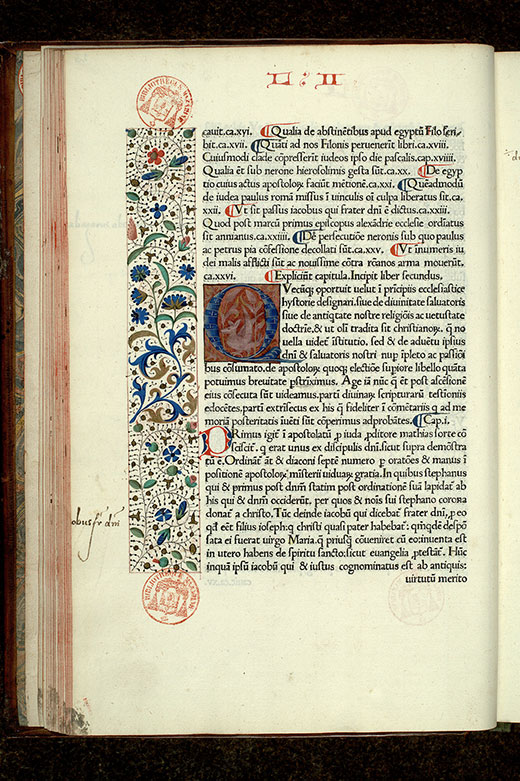 L : II
BIBLIOTHECA MAZARINEA
cauit.ca.xvi. Qualia de abstinētibus apud egyptū Filo scri⸗
bit.ca.xvii. Quāti ad nos Filonis peruenerīt libri.ca.xviii.
Cuiusmodi clade cōpresserīt iudeos ipso die pascalis.cap.xviiii.
Qualia ēt sub nerone hierosolimis gesta sūt.ca.xx. De egyp
tio cuius actus apostoloꝝ faciūt mētionē.ca.xxi. Quēadmodū
de iudea paulus romā missus ī uinculis oī culpa liberatus sit.ca.
xxii. Vt sit passus iacobus qui frater dnī ē dictus.ca.xxiii.
Quod post marcū primus episcopus alexādrie ecclesie ordīatus
sit annianus.ca.xxiiii. De persecutiōe neronis sub quo paulus
ac petrus pia cōfessione decollati sūt.ca.xxv. Vt īnumeris iu
dei malis afflicti sūt ac nouissime cōtra rōanos arma mouerūt.
ca.xxvi. Expliciūt capitula. Incipit liber secundus.
Q Vecūq; oportuit uelut ī prīcipiis ecclesiastice
hystorie designari.siue de diuinitate saluatoris
siue de antiqtate nostre religiōis ac uetustate
doctrīe.& ut olī tradita sit christianoꝝ. q̄ no
uella uideť īstitutio. sed & de aduētu ipsius
dnī & saluatoris nostri nup īpleto ac passiōi
bus cōsumato.de apostoloꝝ quoq; electiōe supiore libello quāta
potuimus breuitate pstrīximus. Age iā nūc q̄ ēt post ascēsionē
eius cōsecuta sūt uideamus.partī diuinaꝝ scripturarū testioniis
edocētes.partī extrīsecus ex his q̄ fideliter ī cōmētariis q ad me
moriā posteritatis īuēti sūt cōperimus adprobātes. Cap.i.
PRimus igiť ī apostolatū p iuda pditore mathias sorte cō
scisciť. q erat unus ex discipulis dnī.sicut supra demōstra
tū ē.Ordināť āt & diaconi septē numero p oratōes & manus ī
positionē apostoloꝝ:misterii uiduaꝝ gratia. In quibus stephanus
qui & primus post dnm̄ statim post ordinationē suā lapidať ab
his qui & dnm̄ occiderūt. per quos & noīs sui stephano corona
donať a christo. Tūc deinde iacobū qui dicebať frater dnī, p eo
qd̄ eēt filius ioseph:q christi quasi pater habebať: qm̄qdē despō
sata ei fuerat uirgo Maria.q̄ priusq̄ cōueniret cū eo:inuenta est
in utero habens de spiritu sancto:sicut euangelia ptestāť. Hūc
inquā ipsū iacobū qui & iustus cognominatus est ab antiquis:
uirtutū merito
obus fr dnī
BIBLIOTHECA MAZARINEA